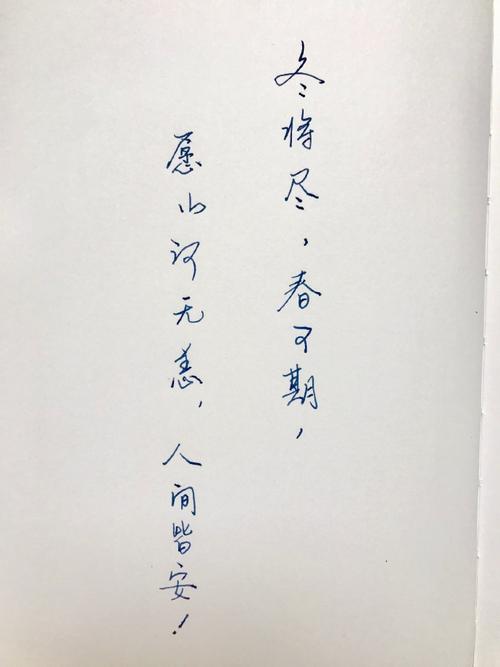 冬将尽，春可期，
愿山河无恙，人间皆安！